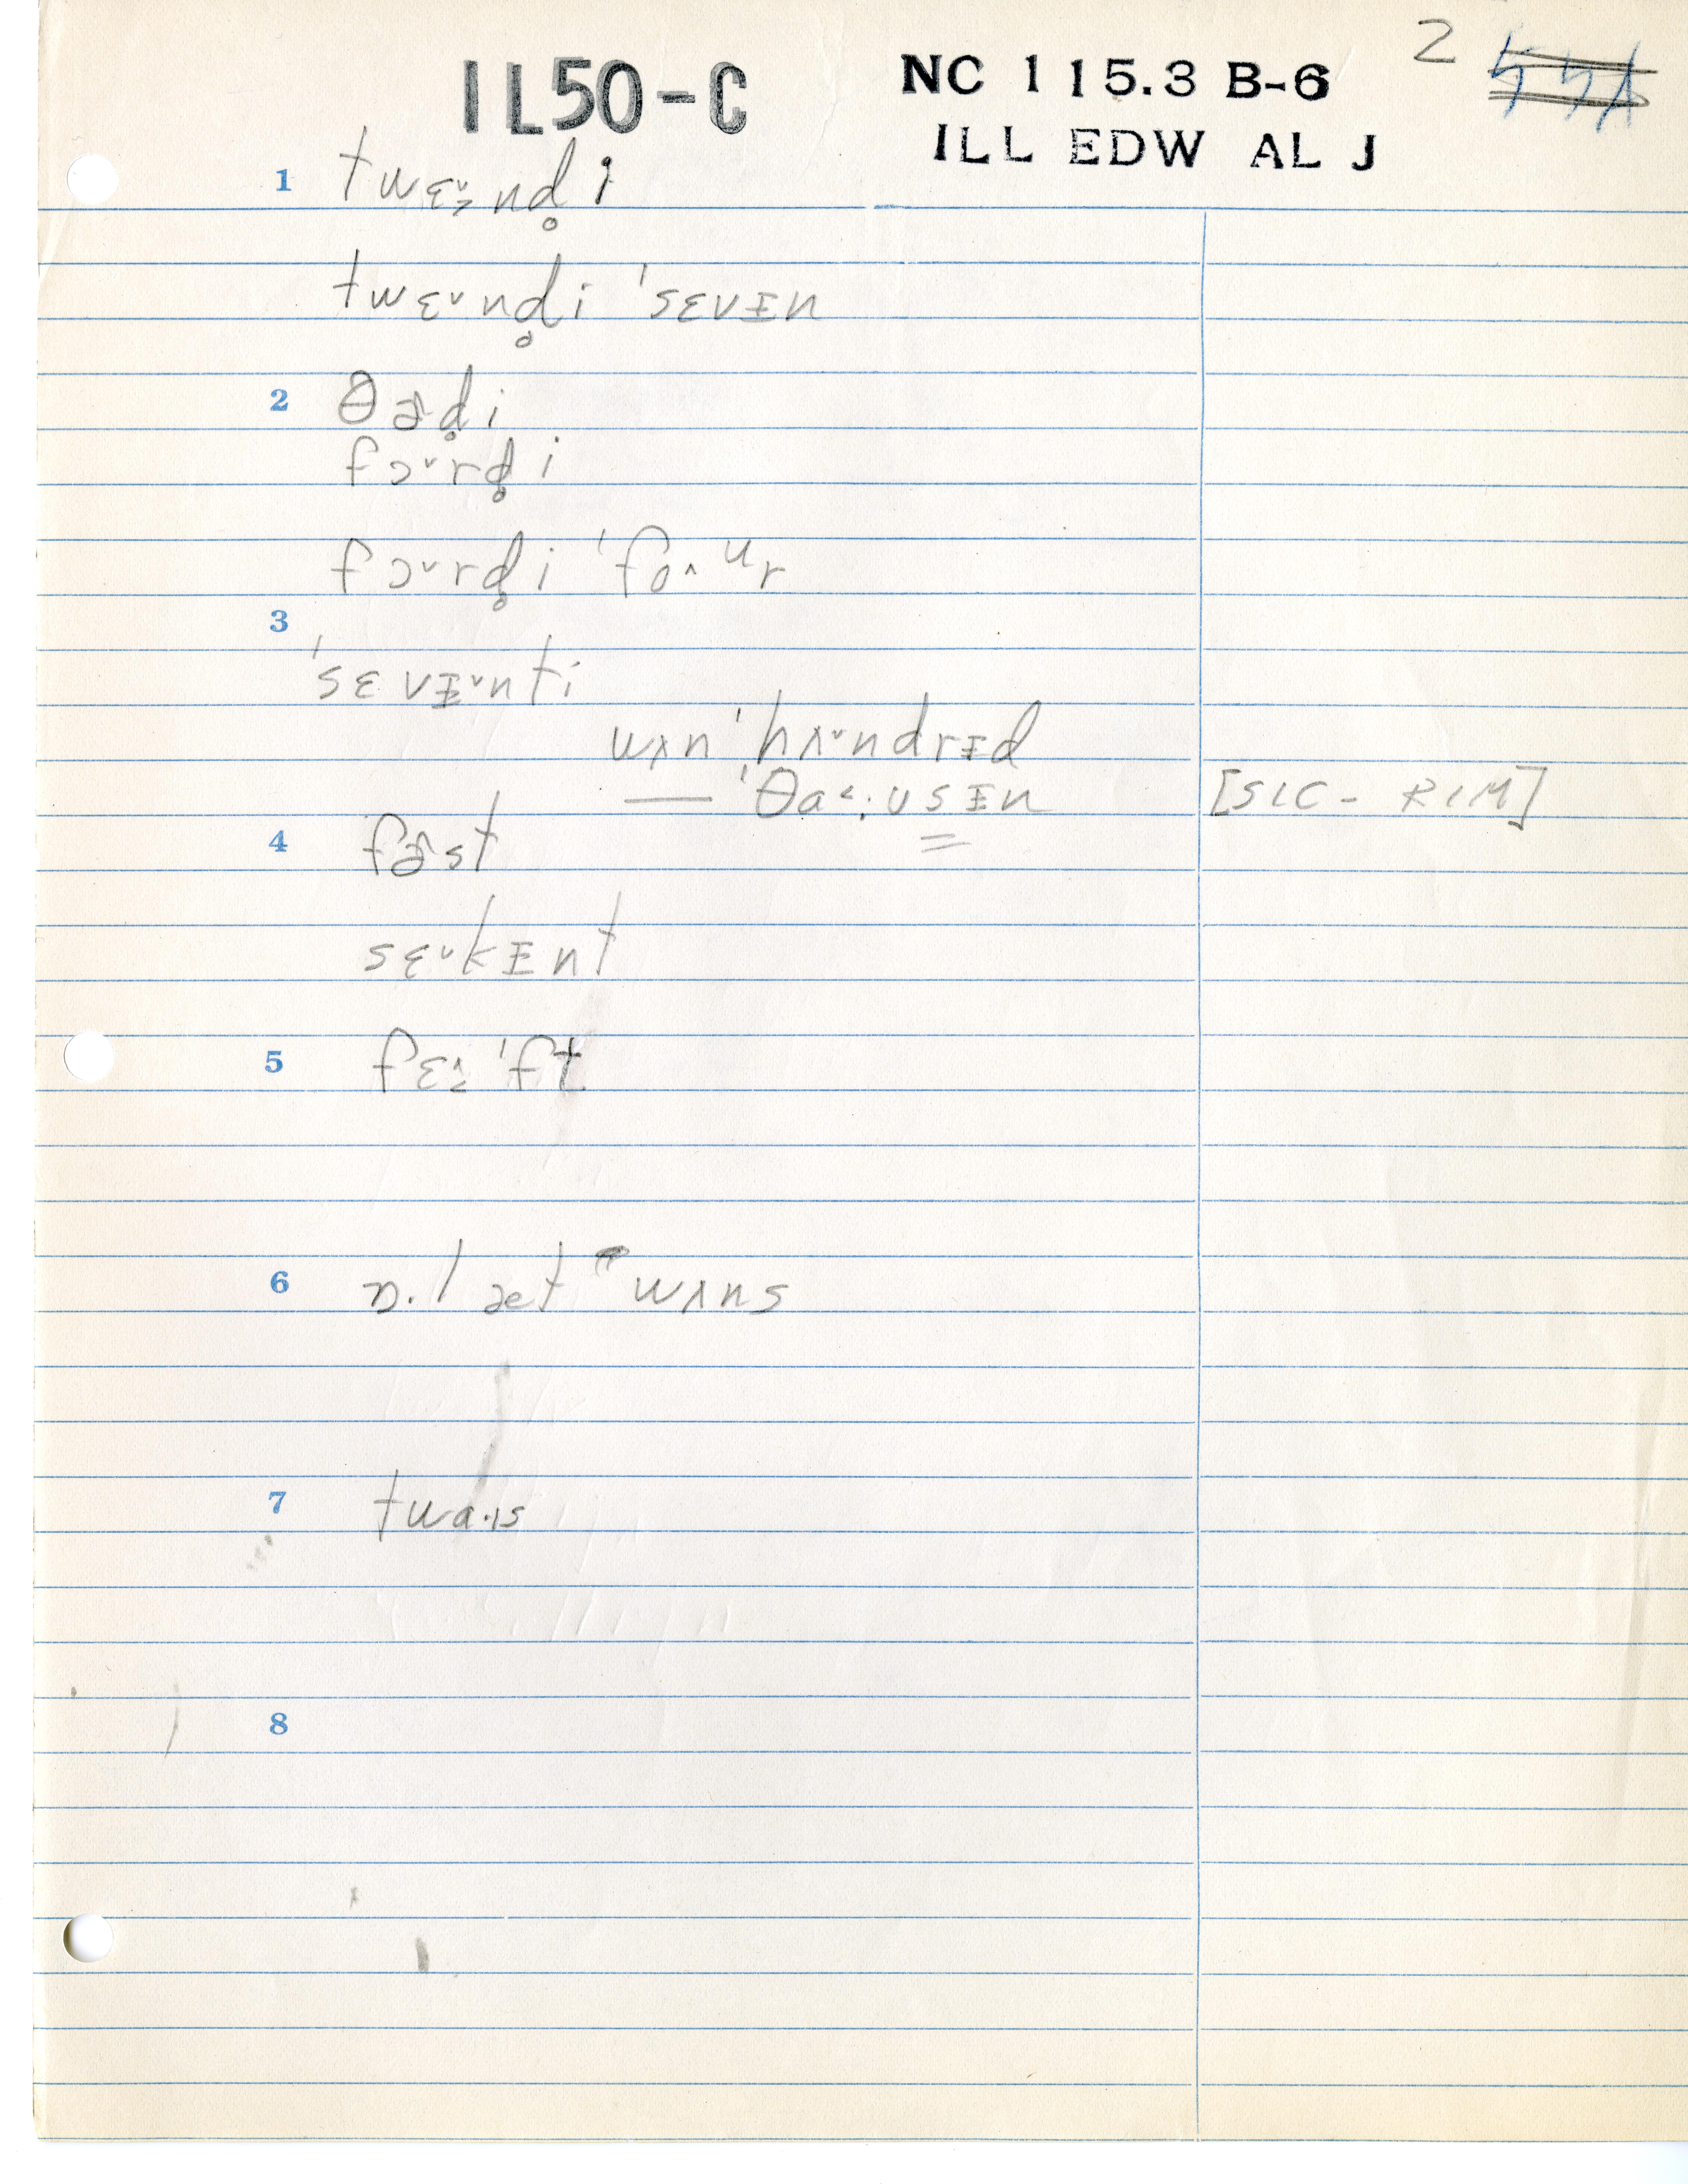 2
IL50-C
NC 115.3 B-6
ILL EDW AL J
1 twɛ˅˃nd̥i
twɛ˅nd̥i 'sɛvᵻn
2 θɚd̥i
fɔ˅rd̥i
fɔ˅rd̥i 'fo^ᵘr
3
'sɛvᵻ˅nti
wʌn 'hʌ˅ndrᵻd
— 'θa˂·ʊsᵻn [SIC - RIM]
4 fɚst
sɛ˅kᵻnt
5 'ft
6 ɒ·l æt wʌns
7 twa·ɪs
8